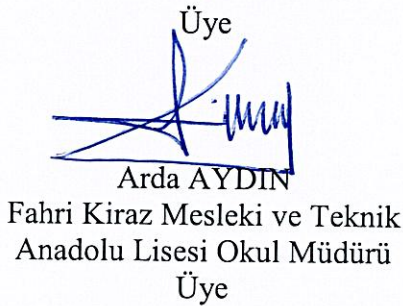 Üye
Arda AYDIN
Fahri Kiraz Mesleki ve Teknik
Anadolu Lisesi Okul Müdürü
Üye